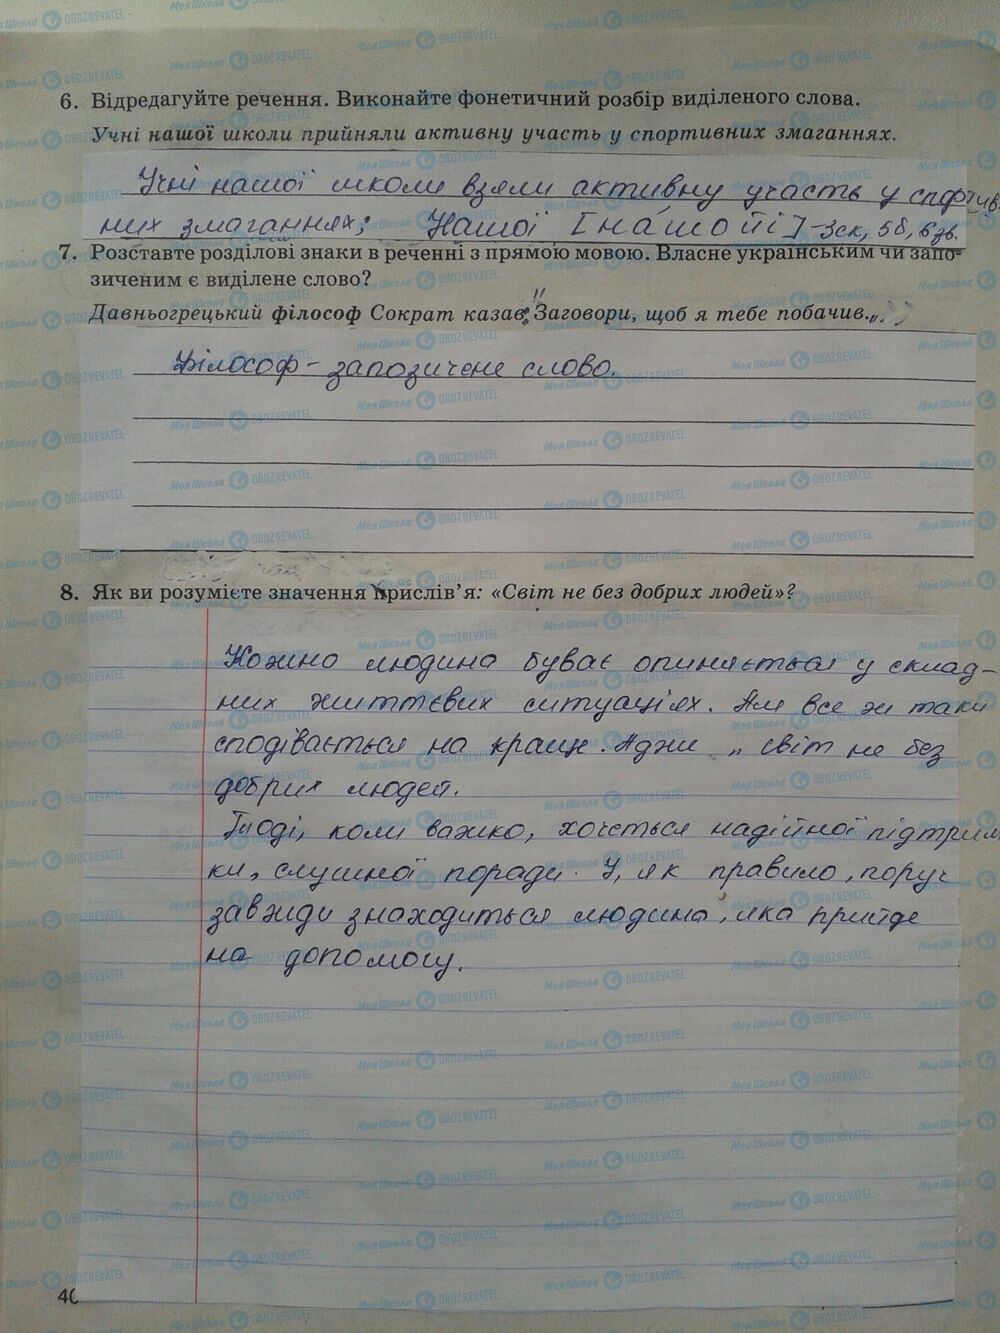 6. Відредагуйте речення. Виконайте фонетичний розбір виділеного слова.
Учні нашої школи прийняли активну участь у спортивних змаганнях.
Учні нашої школи взяли активну участь у спортив
них змаганнях; Нашої [на́шойі] - 3ск, 5б, 6зв.
7. Розставте розділові знаки в реченні з прямою мовою. Власне українським чи запо-
зиченим є виділене слово?
Давньогрецький філософ Сократ казав: "Заговори, щоб я тебе побачив".
Філософ - запозичене слово.
8. Як ви розумієте значення прислів'я: «Світ не без добрих людей»?
Кожна людина буває опиняється у склад-
них життєвих ситуаціях. Але все ж таки
сподівається на краще. Адже „ світ не без
добрих людей.
Тоді, коли важко, хочеться надійної підтрим
ки, слушної поради. І, як правило, поруч
завжди знаходиться людина, яка прийде
на допомогу.
40
МояШкола OBOZREVATEL